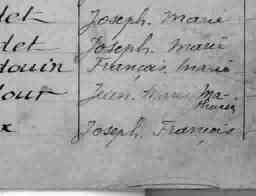 det Joseph. Marie
det Joseph. Marie
douin François, Marie
dout Jean, Marie Ma-
thurin
x Joseph, François